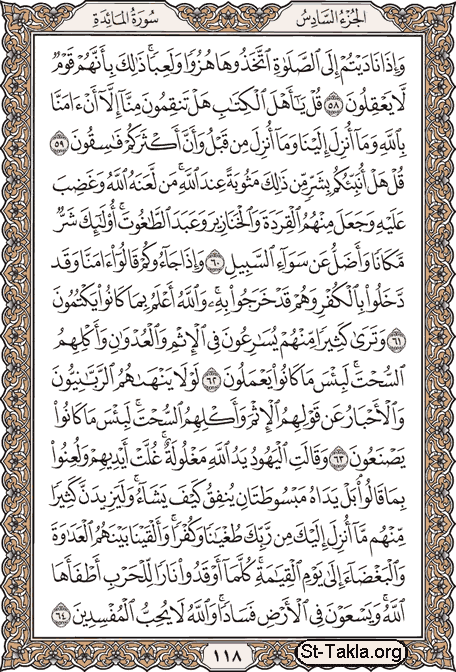 سُورَةُ المَائِدَة
الجُزءُ السَّادِسُ
وَإِذَا نَادَيْتُمْ إِلَى ٱلصَّلَوٰةِ ٱتَّخَذُوهَا هُزُوًا وَلَعِبًا ۚ ذَٰلِكَ بِأَنَّهُمْ قَوْمٌ
لَّا يَعْقِلُونَ ٥٨ قُلْ يَٰٓأَهْلَ ٱلْكِتَٰبِ هَلْ تَنقِمُونَ مِنَّآ إِلَّآ أَنْ ءَامَنَّا
بِٱللَّهِ وَمَآ أُنزِلَ إِلَيْنَا وَمَآ أُنزِلَ مِن قَبْلُ وَأَنَّ أَكْثَرَكُمْ فَٰسِقُونَ ٥٩
قُلْ هَلْ أُنَبِّئُكُم بِشَرٍّ مِّن ذَٰلِكَ مَثُوبَةً عِندَ ٱللَّهِ ۚ مَن لَّعَنَهُ ٱللَّهُ وَغَضِبَ
عَلَيْهِ وَجَعَلَ مِنْهُمُ ٱلْقِرَدَةَ وَٱلْخَنَازِيرَ وَعَبَدَ ٱلطَّٰغُوتَ ۚ أُو۟لَٰٓئِكَ شَرٌّ
مَّكَانًا وَأَضَلُّ عَن سَوَآءِ ٱلسَّبِيلِ ٦٠ وَإِذَا جَآءُوكُمْ قَالُوٓا۟ ءَامَنَّا وَقَد
دَّخَلُوا۟ بِٱلْكُفْرِ وَهُمْ قَدْ خَرَجُوا۟ بِهِۦ ۚ وَٱللَّهُ أَعْلَمُ بِمَا كَانُوا۟ يَكْتُمُونَ
٦١ وَتَرَىٰ كَثِيرًا مِّنْهُمْ يُسَٰرِعُونَ فِى ٱلْإِثْمِ وَٱلْعُدْوَٰنِ وَأَكْلِهِمُ
ٱلسُّحْتَ ۚ لَبِئْسَ مَا كَانُوا۟ يَعْمَلُونَ ٦٢ لَوْلَا يَنْهَىٰهُمُ ٱلرَّبَّٰنِيُّونَ
وَٱلْأَحْبَارُ عَن قَوْلِهِمُ ٱلْإِثْمَ وَأَكْلِهِمُ ٱلسُّحْتَ ۚ لَبِئْسَ مَا كَانُوا۟
يَصْنَعُونَ ٦٣ وَقَالَتِ ٱلْيَهُودُ يَدُ ٱللَّهِ مَغْلُولَةٌ ۚ غُلَّتْ أَيْدِيهِمْ وَلُعِنُوا۟
بِمَا قَالُوا۟ ۘ بَلْ يَدَاهُ مَبْسُوطَتَانِ يُنفِقُ كَيْفَ يَشَآءُ ۚ وَلَيَزِيدَنَّ كَثِيرًا
مِّنْهُم مَّآ أُنزِلَ إِلَيْكَ مِن رَّبِّكَ طُغْيَٰنًا وَكُفْرًا ۚ وَأَلْقَيْنَا بَيْنَهُمُ ٱلْعَدَٰوَةَ
وَٱلْبَغْضَآءَ إِلَىٰ يَوْمِ ٱلْقِيَٰمَةِ ۚ كُلَّمَآ أَوْقَدُوا۟ نَارًا لِّلْحَرْبِ أَطْفَأَهَا
ٱللَّهُ ۚ وَيَسْعَوْنَ فِى ٱلْأَرْضِ فَسَادًا ۚ وَٱللَّهُ لَا يُحِبُّ ٱلْمُفْسِدِينَ ٦٤
١١٨
St-Takla.org